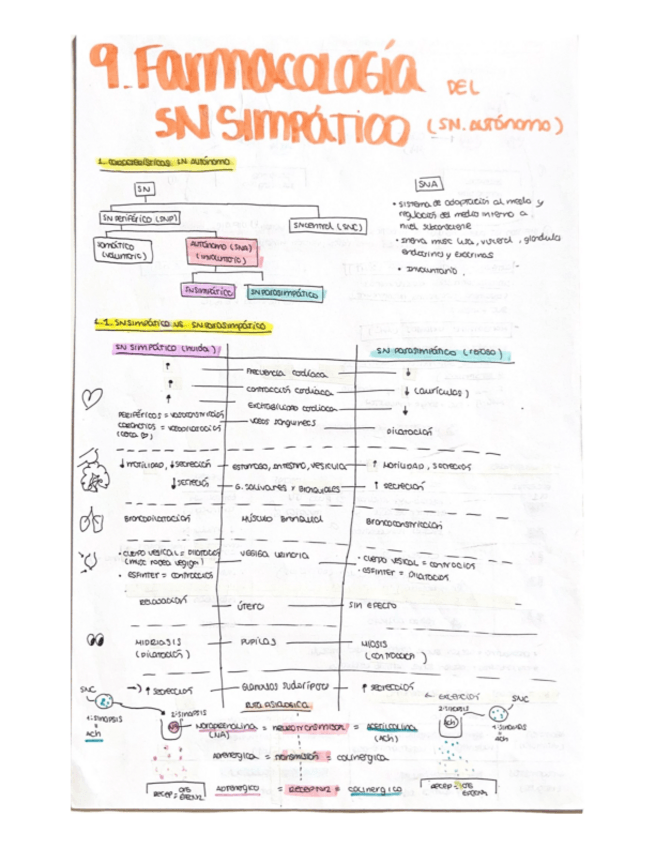 9. Farmacología DEL
SN SIMPÁTICO (SN. AUTÓNOMO)
1. CARACTERÍSTICAS SN AUTÓNOMO
SN
SN PERIFÉRICO (SNP)
SN CENTRAL (SNC)
SOMÁTICO
(VOLUNTARIO)
AUTÓNOMO (SNA)
(INVOLUNTARIO)
SN SIMPÁTICO
SN PARASIMPÁTICO
SNA
• SISTEMA de adaptación al medio y
regulación del medio interno a
nivel subconsciente
• Inerva musc lisa, visceral, glándula
endocrina y exocrinas
• Involuntario.
1.1. SN SIMPÁTICO VS SN PARASIMPÁTICO
SN SIMPÁTICO (huida)
SN PARASIMPÁTICO (reposo)
↑ FRECUENCIA cardíaca ↓
↑ contracción cardíaca ↓ (aurículas)
↑ Excitabilidad cardíaca ↓
PERIFÉRICOS = VASOCONSTRICCIÓN
CORONARIOS = VASODILATACIÓN
VASOS sanguíneos
DILATACIÓN
↓ MOTILIDAD, ↓ SECRECIÓN ESTÓMAGO, INTESTINO, VESÍCULA ↑ MOTILIDAD, SECRECIÓN
↓ SECRECIÓN G. SALIVARES Y BRONQUIALES ↑ SECRECIÓN
BRONCODILATACIÓN MÚSCULO BRONQUIAL BRONCOCONSTRICCIÓN
• CUERPO VESICAL = DILATACIÓN
(MUSC RODEA VEJIGA)
• ESFINTER = CONTRACCIÓN
VEGIGA URINARIA
• CUERPO VESICAL = CONTRACCIÓN
• ESFINTER = DILATACIÓN
RELAJACIÓN ÚTERO SIN EFECTO
MIDRIASIS
(DILATACIÓN)
PUPILAS
MIOSIS
(CONTRACCIÓN)
→) ↑ SECRECIÓN GLÁNDULAS SUDORÍPARAS ↑ SECRECIÓN
SNC
1ª SINAPSIS
=
ACh
2ª SINAPSIS
NA
NORADRENALINA = NEUROTRANSMISOR = ACETILCOLINA
(NA) (ACh)
2ª SINAPSIS
ACh
SNC
1ª SINAPSIS
=
ACh
ADRENÉRGICA = TRANSMISIÓN = COLINÉRGICA
ADRENÉRGICO = RECEPTOR = COLINÉRGICO